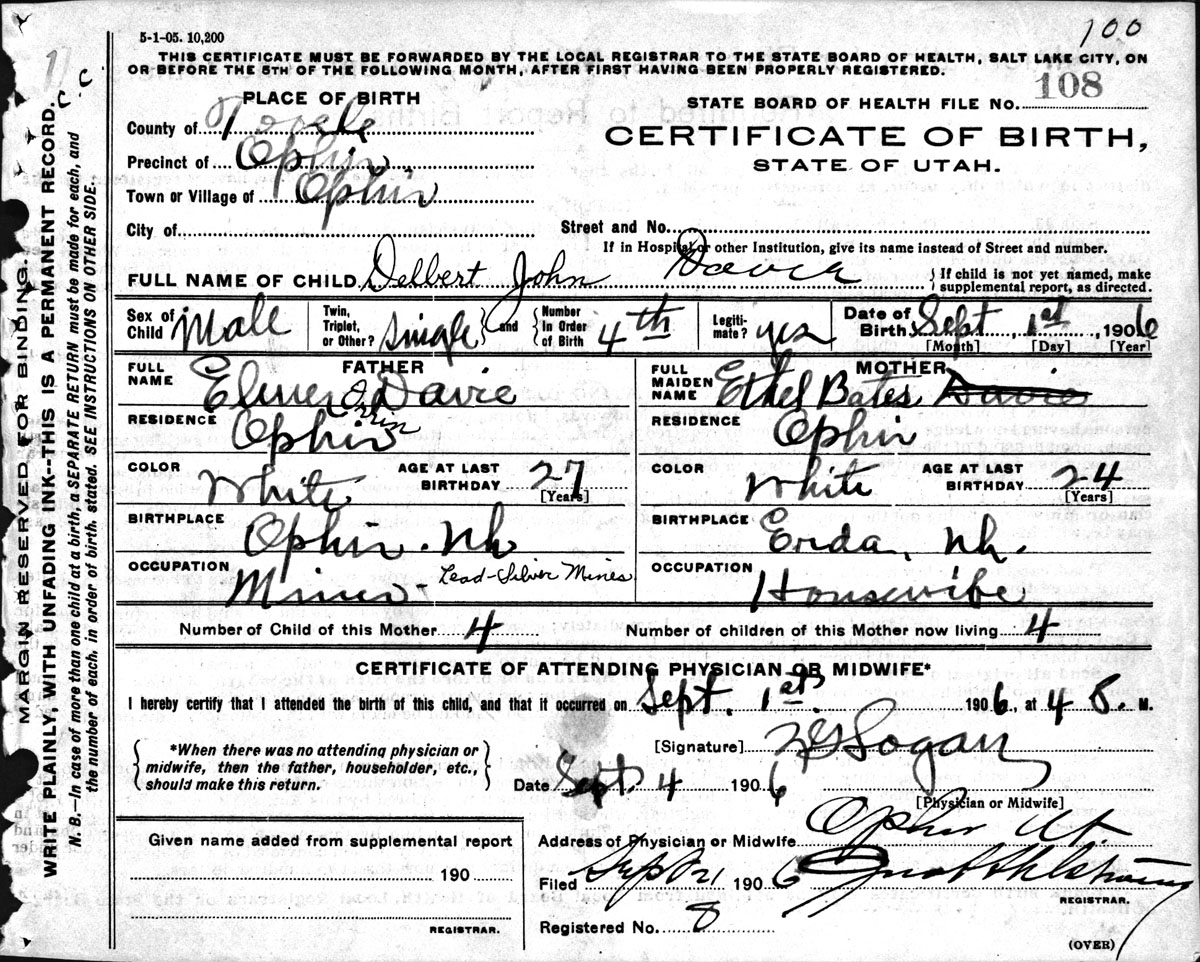 100
5-1-05. 10,200
THIS CERTIFICATE MUST BE FORWARDED BY THE LOCAL REGISTRAR TO THE STATE BOARD OF HEALTH, SALT LAKE CITY, ON
OR BEFORE THE 5TH OF THE FOLLOWING MONTH, AFTER FIRST HAVING BEEN PROPERLY REGISTERED.
PLACE OF BIRTH
STATE BOARD OF HEALTH FILE NO. 108
County of Tooele
CERTIFICATE OF BIRTH,
Precinct of Ophir
STATE OF UTAH.
Town or Village of Ophir
City of
Street and No.
If in Hospital or other Institution, give its name instead of Street and number.
FULL NAME OF CHILD Delbert John Davie
If child is not yet named, make
supplemental report, as directed.
Sex of Child Male
Twin, Triplet, or Other? Single and Number In Order of Birth 4th
Legitimate? yes
Date of Birth Sept 1st, 1906
[Month] [Day] [Year]
FATHER
FULL NAME Elmer Davie
MOTHER
FULL MAIDEN NAME Ethel Bates Davie
RESIDENCE Ophir
RESIDENCE Ophir
COLOR White AGE AT LAST BIRTHDAY 27 [Years]
COLOR White AGE AT LAST BIRTHDAY 24 [Years]
BIRTHPLACE Ophir.
BIRTHPLACE Erda,
OCCUPATION Miner - Lead-Silver Mines
OCCUPATION Housewife
Number of Child of this Mother 4
Number of children of this Mother now living 4
CERTIFICATE OF ATTENDING PHYSICIAN OR MIDWIFE*
I hereby certify that I attended the birth of this child, and that it occurred on Sept. 1st 1906, at 4 M.
*When there was no attending physician or
midwife, then the father, householder, etc.,
should make this return.
[Signature] Logan
Date Sept 4 1906
[Physician or Midwife]
Given name added from supplemental report
190
REGISTRAR.
Address of Physician or Midwife Ophir Ut
Filed Sept 1906 Ahlstrom
REGISTRAR.
Registered No. 8
(OVER)
MARGIN RESERVED FOR BINDING.
WRITE PLAINLY, WITH UNFADING INK--THIS IS A PERMANENT RECORD.
N. B.—In case of more than one child at a birth, a SEPARATE RETURN must be made for each, and
the number of each, in order of birth, stated. SEE INSTRUCTIONS ON OTHER SIDE.